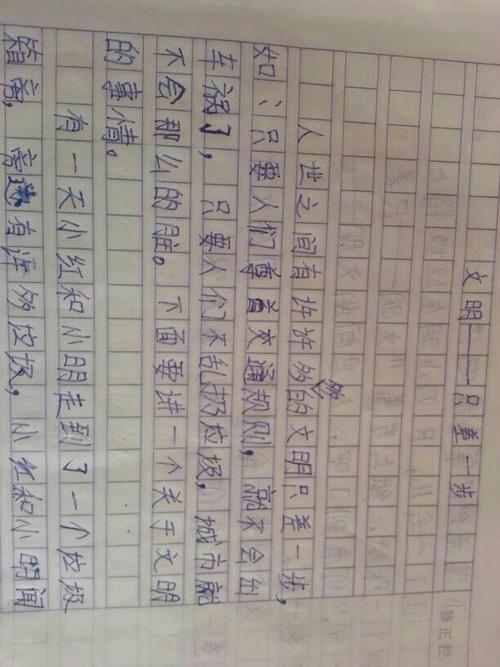 文明——只差一步
人世之间有许许多多的文明只差一步，
如：只要人们尊首交通规则，就不会出
车祸了，只要人们不乱扔垃圾，城市就
不会那么的脏。下面要讲一个关于文明
的事情。
有一天小红和小明走到了一个垃圾
箱旁，旁边有许多垃圾，小红和小明闻
修正栏